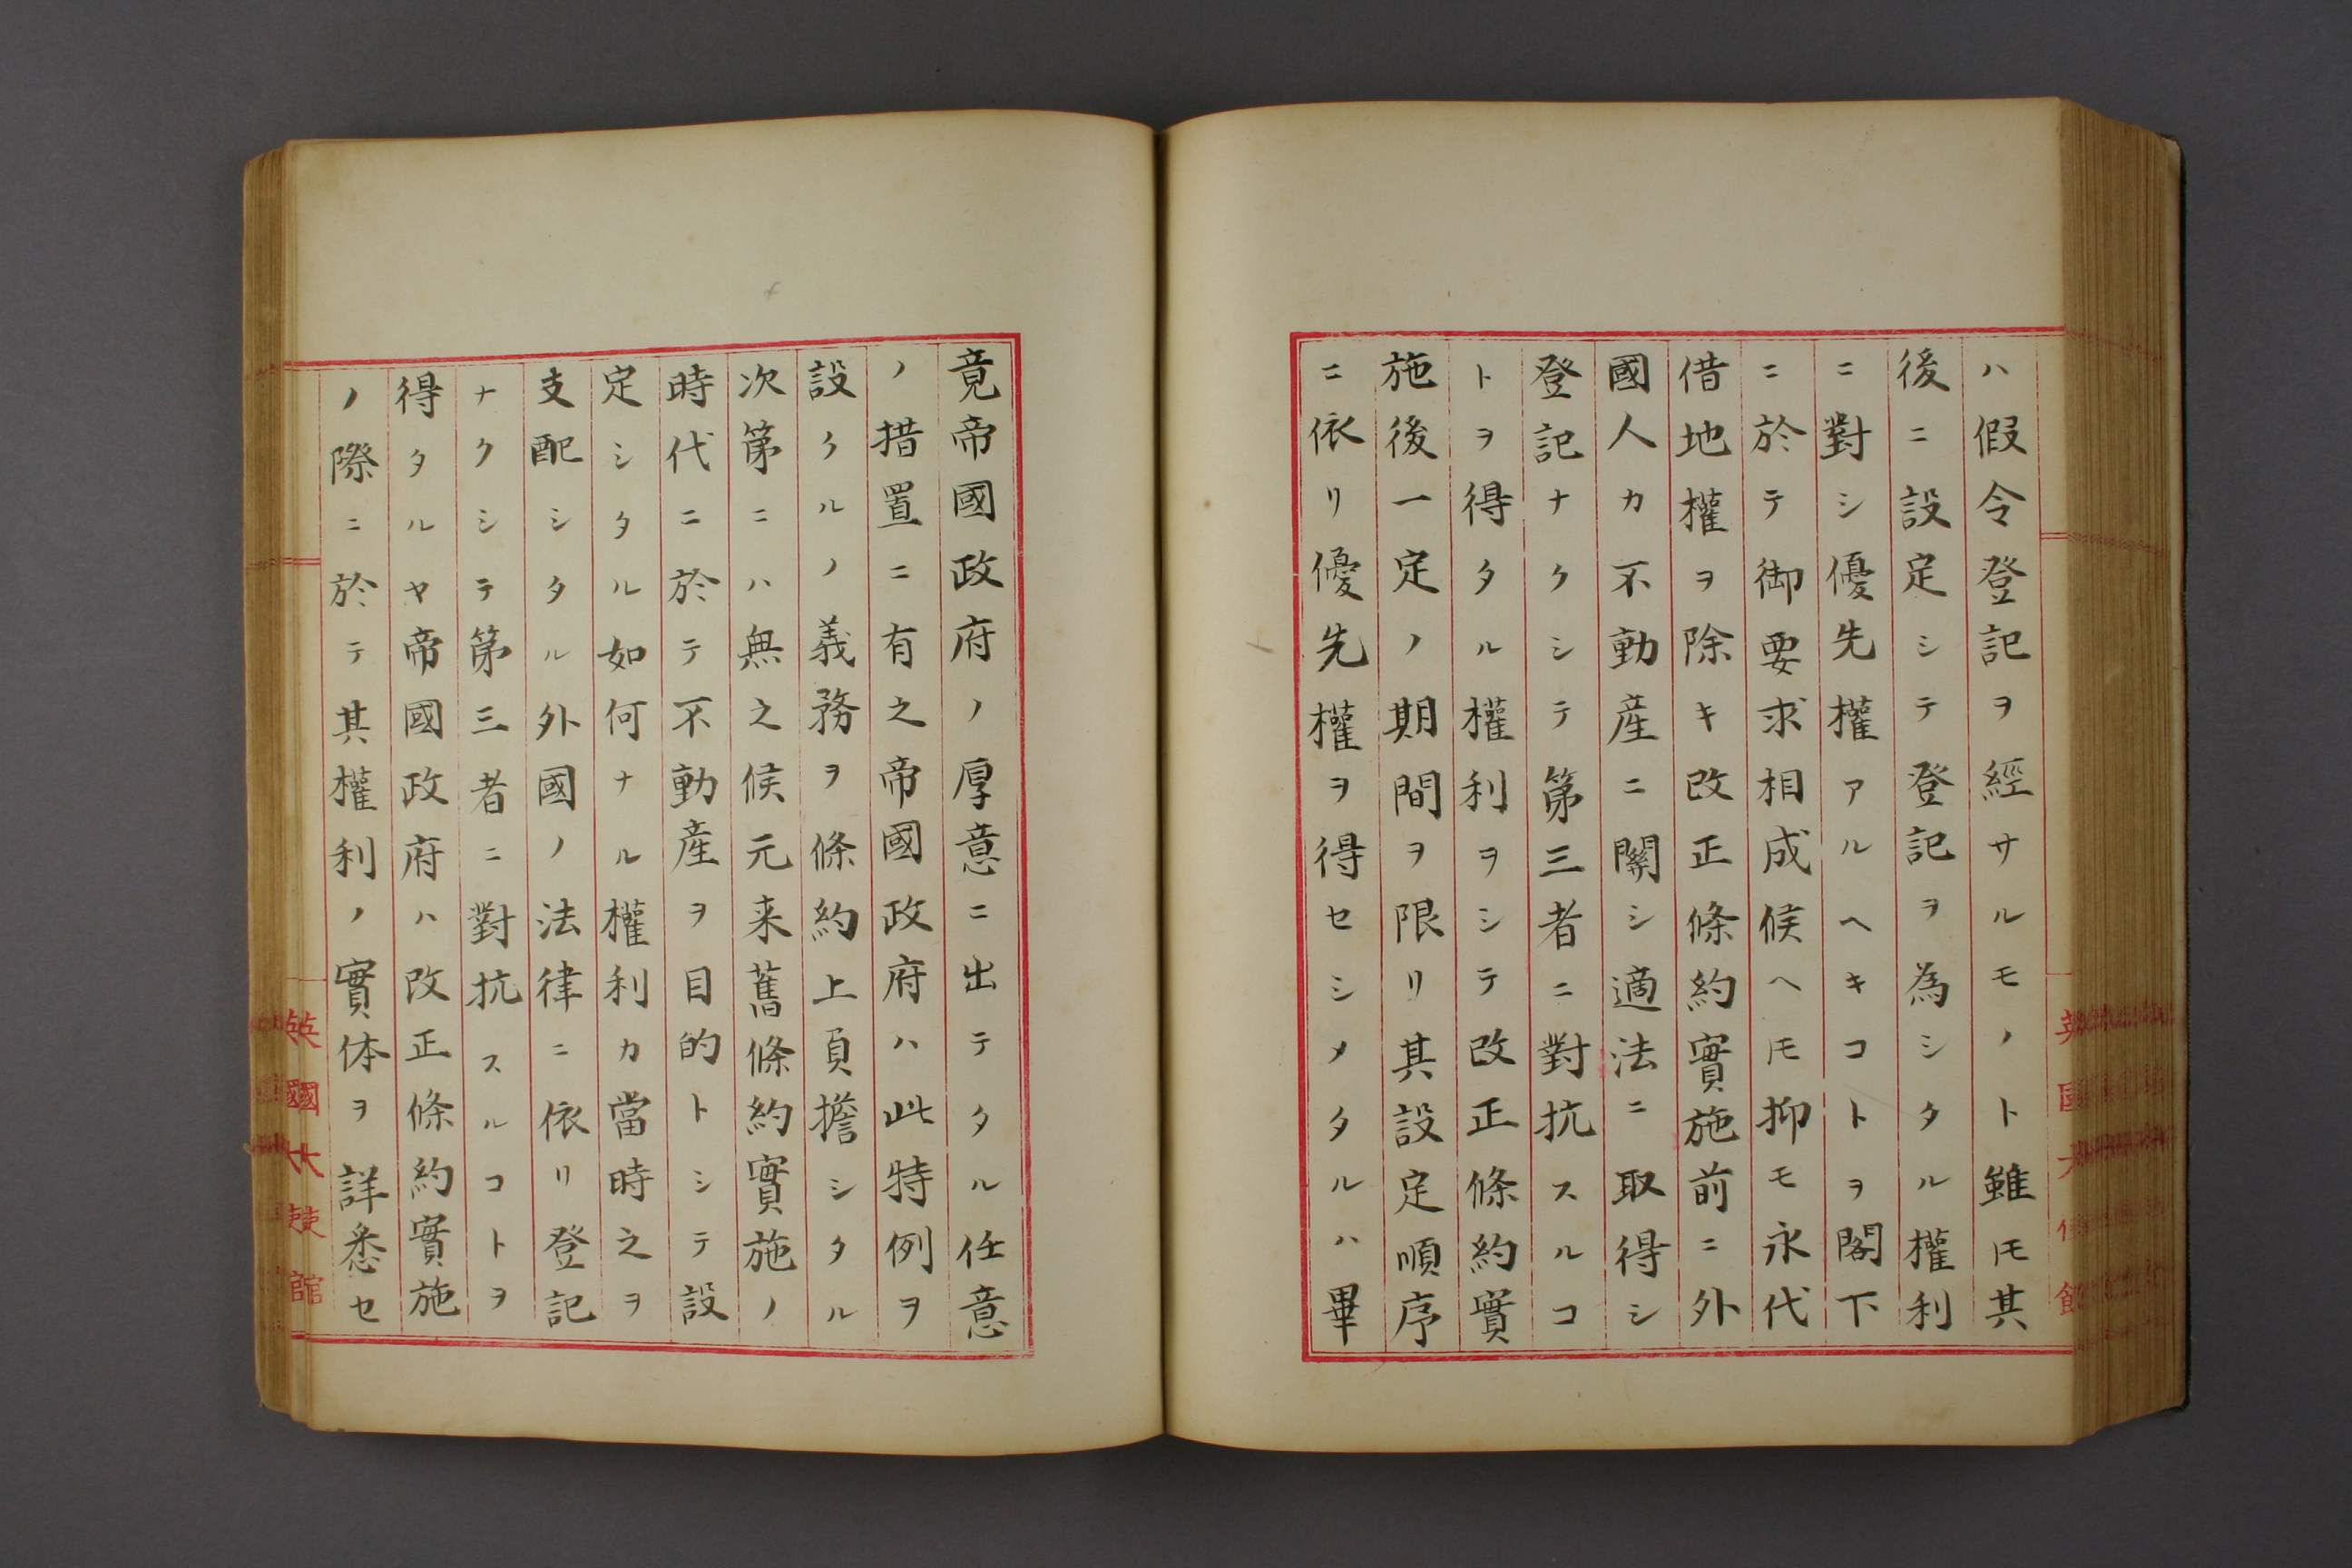 ハ假令登記ヲ經サルモノト雖𪜈其
後ニ設定シテ登記ヲ為シタル權利
ニ對シ優先權アルヘキコトヲ閣下
ニ於テ御要求相成候ヘ𪜈抑モ永代
借地權ヲ除キ改正條約實施前ニ外
國人カ不動産ニ關シ適法ニ取得シ
登記ナクシテ第三者ニ對抗スルコ
トヲ得タル權利ヲシテ改正條約實
施後一定ノ期間ヲ限リ其設定順序
ニ依リ優先權ヲ得セシメタルハ畢
竟帝國政府ノ厚意ニ出テタル任意
ノ措置ニ有之帝國政府ハ此特例ヲ
設クルノ義務ヲ條約上負擔シタル
次第ニハ無之候元来舊條約實施ノ
時代ニ於テ不動産ヲ目的トシテ設
定シタル如何ナル權利カ當時之ヲ
支配シタル外國ノ法律ニ依リ登記
ナクシテ第三者ニ對抗スルコトヲ
得タルヤ帝國政府ハ改正條約實施
ノ際ニ於テ其權利ノ實体ヲ詳悉セ
英國大使館